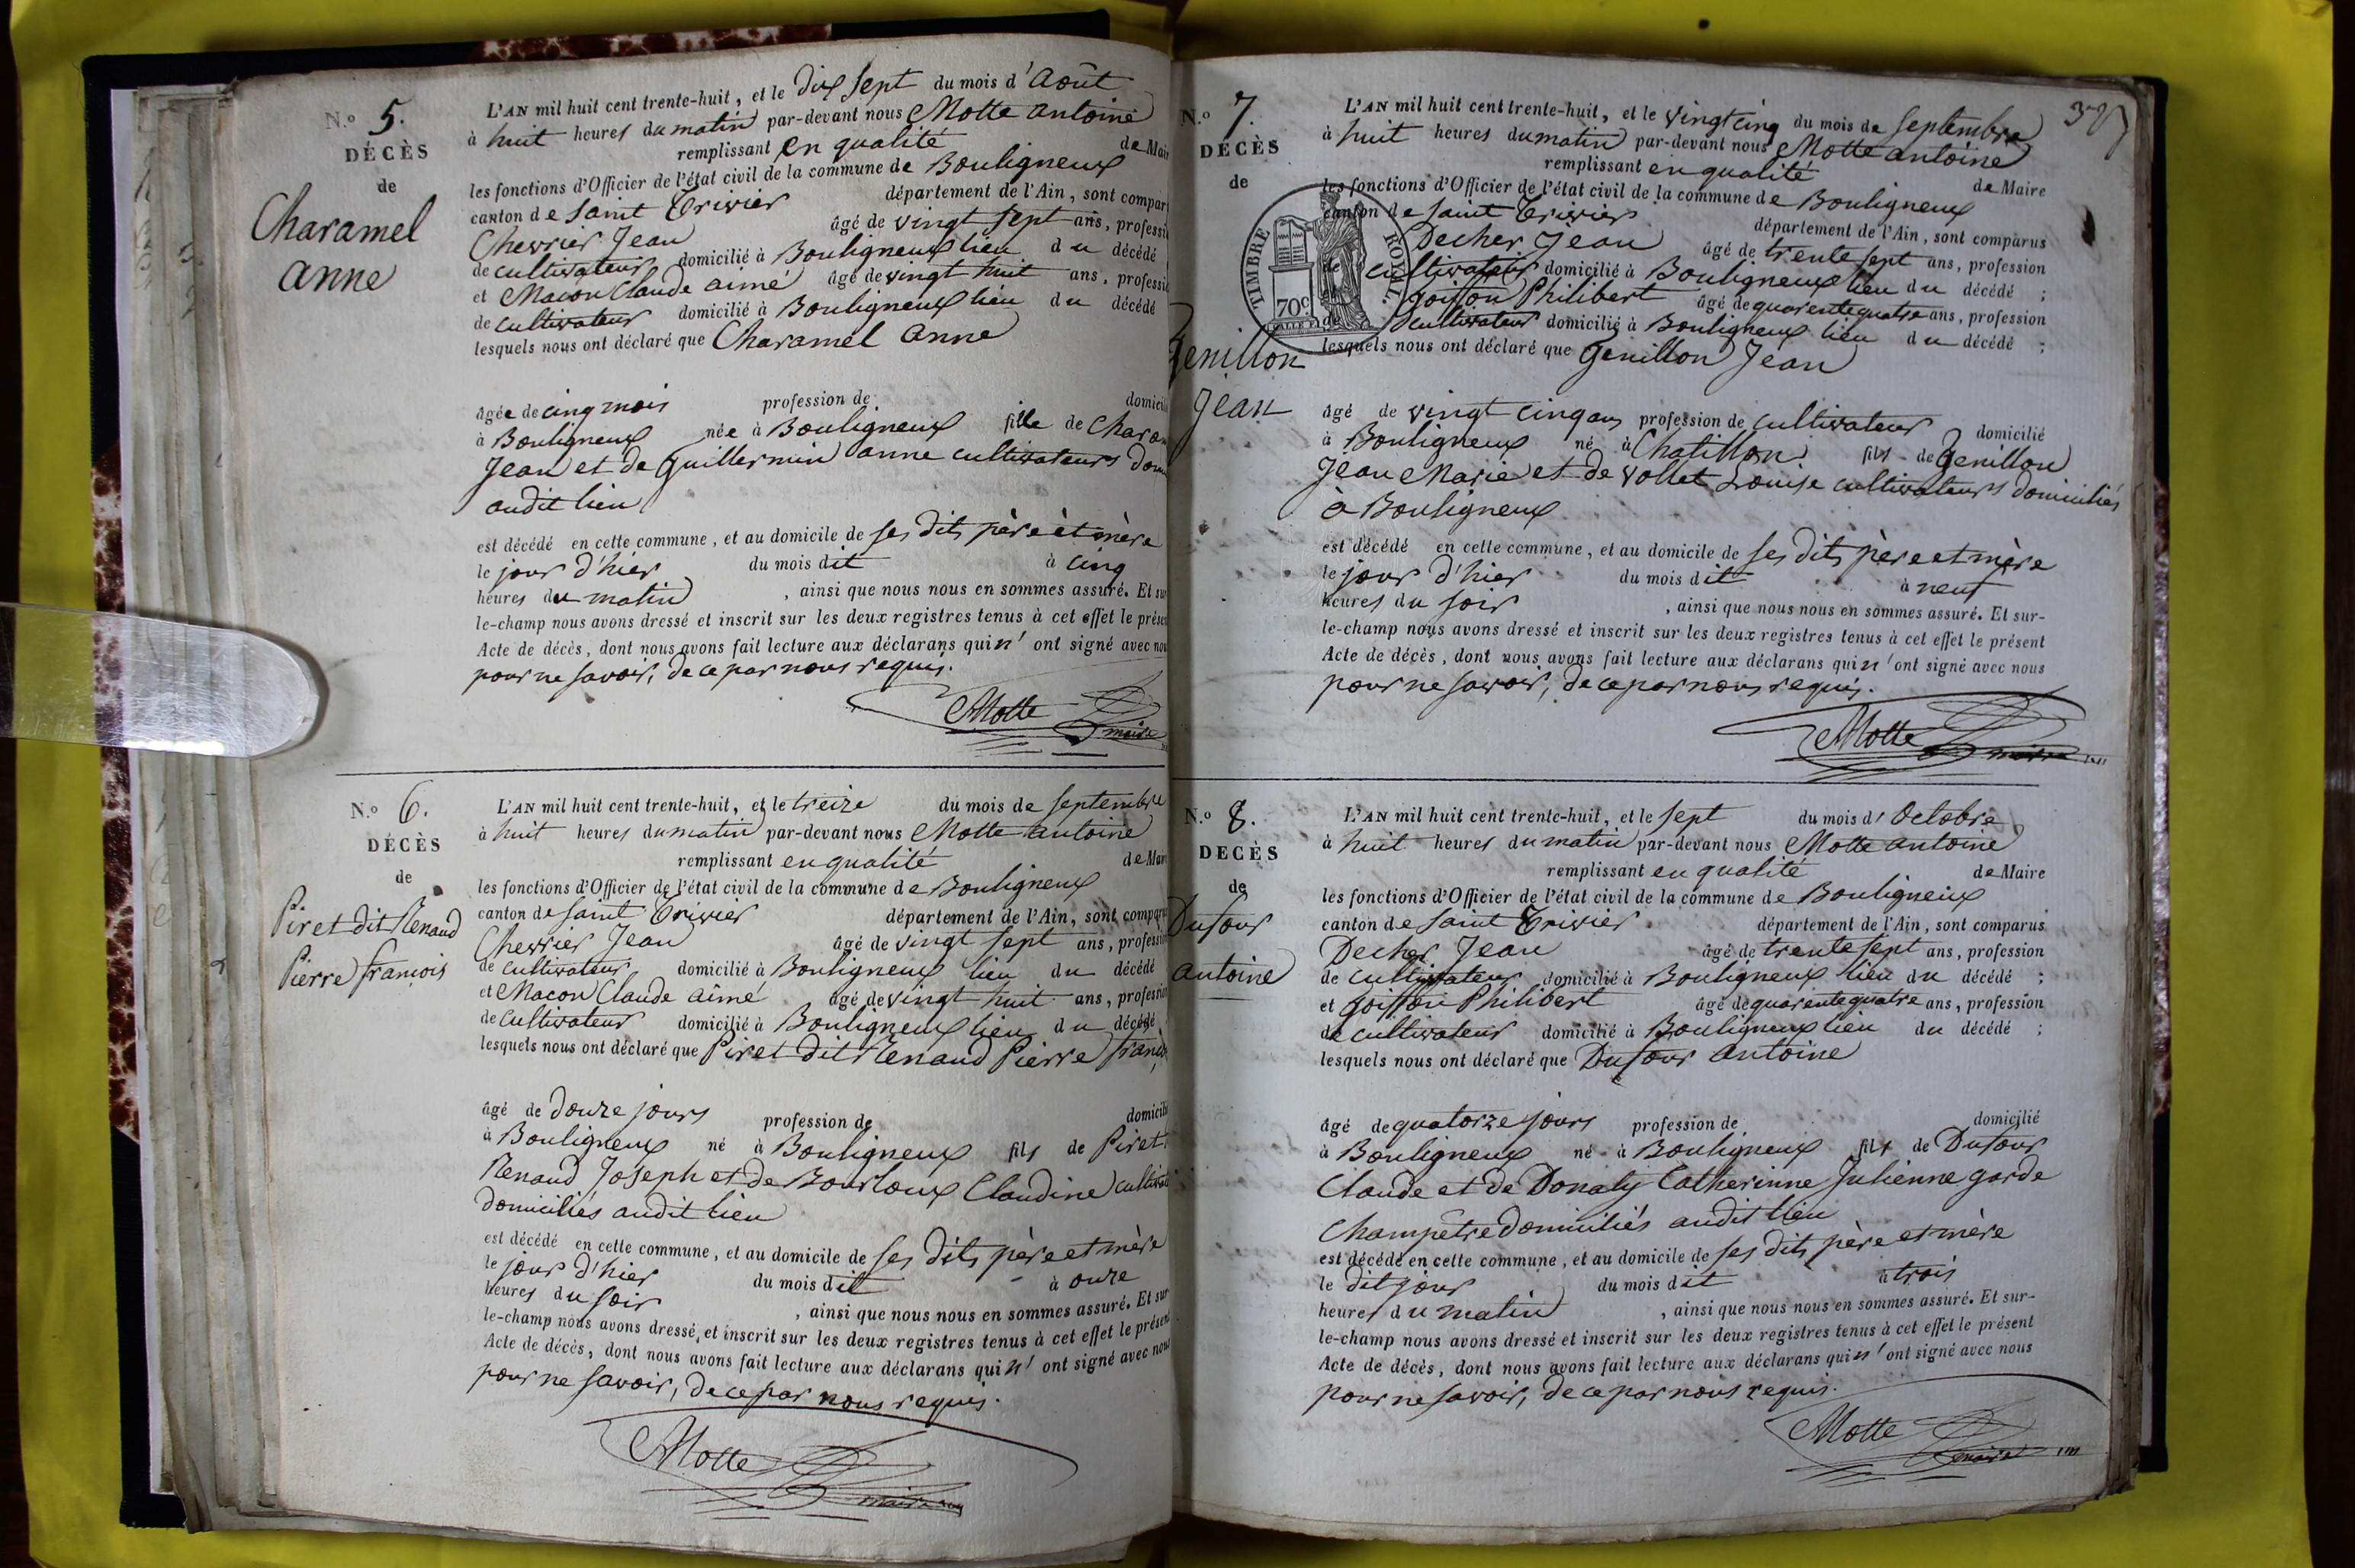 N.º 5.
DÉCÈS
de
Charamel
anne
L'AN mil huit cent trente-huit, et le dix sept du mois d'Août
à huit heures du matin par-devant nous Motte antoine
remplissant en qualité de Mair
les fonctions d'Officier de l'état civil de la commune de Bouligneux
canton de saint Trivier département de l'Ain, sont compar
Chevrier Jean âgé de vingt sept ans, professi
de cultivateur domicilié à Bouligneux lieu du décédé
et Macon Claude aimé âgé de vingt huit ans, professi
de cultivateur domicilié à Bouligneux lieu du décédé
lesquels nous ont déclaré que Charamel anne
âgée de cinq mois profession de domicili
à Bouligneux née à Bouligneux fille de Charam
Jean et de Guillermin anne cultivateurs dom
audit lieu
est décédé en cette commune, et au domicile de ses dits père et mère
le jour d'hier du mois dit à cinq
heures du matin, ainsi que nous nous en sommes assuré. Et sur
le-champ nous avons dressé et inscrit sur les deux registres tenus à cet effet le présen
Acte de décès, dont nous avons fait lecture aux déclarans qui n'ont signé avec nou
pour ne savoir, de ce par nous requis.
Motte
maire
N.º 6.
DÉCÈS
de
Piret dit Renaud
Pierre françois
L'AN mil huit cent trente-huit, et le treize du mois de septembre
à huit heures du matin par-devant nous Motte antoine
remplissant en qualité de Mair
les fonctions d'Officier de l'état civil de la commune de Bouligneux
canton de saint Trivier département de l'Ain, sont comparu
Chevrier Jean âgé de vingt sept ans, profession
de cultivateur domicilié à Bouligneux lieu du décédé
et Macon Claude aimé âgé de vingt huit ans, profession
de cultivateur domicilié à Bouligneux lieu du décédé
lesquels nous ont déclaré que Piret dit Renaud Pierre franço
âgé de douze jours profession de domicilié
à Bouligneux né à Bouligneux fils de Piret
Renaud Joseph et de Bourloux Claudine cultivat
domiciliés audit lieu
est décédé en cette commune, et au domicile de ses dits père et mère
le jour d'hier du mois dit à onze
heures du soir, ainsi que nous nous en sommes assuré. Et sur
le-champ nous avons dressé et inscrit sur les deux registres tenus à cet effet le présent
Acte de décès, dont nous avons fait lecture aux déclarans qui n'ont signé avec nous
pour ne savoir, de ce par nous requis.
Motte
maire
N.º 7.
DÉCÈS
de
Genillon
Jean
TIMBRE ROYAL.
70c
L'AN mil huit cent trente-huit, et le vingt cinq du mois de septembre
à huit heures du matin par-devant nous Motte antoine
remplissant en qualité de Maire
les fonctions d'Officier de l'état civil de la commune de Bouligneux
canton de saint Trivier département de l'Ain, sont comparus
Decher Jean âgé de trente sept ans, profession
de cultivateur domicilié à Bouligneux lieu du décédé ;
goiffon Philibert âgé de quarente quatre ans, profession
de cultivateur domicilié à Bouligneux lieu du décédé ;
lesquels nous ont déclaré que Genillon Jean
âgé de vingt cinq ans profession de cultivateur domicilié
à Bouligneux né à Chatillon fils de Genillon
Jean Marie et de Vollet Louise cultivateurs domiciliés
à Bouligneux
est décédé en cette commune, et au domicile de ses dits père et mère
le jour d'hier du mois dit à neuf
heures du soir, ainsi que nous nous en sommes assuré. Et sur-
le-champ nous avons dressé et inscrit sur les deux registres tenus à cet effet le présent
Acte de décès, dont nous avons fait lecture aux déclarans qui n'ont signé avec nous
pour ne savoir, de ce par nous requis.
Motte
maire
N.º 8.
DÉCÈS
de
Dufour
antoine
L'AN mil huit cent trente-huit, et le sept du mois d'Octobre
à huit heures du matin par-devant nous Motte antoine
remplissant en qualité de Maire
les fonctions d'Officier de l'état civil de la commune de Bouligneux
canton de saint Trivier département de l'Ain, sont comparus
Decher Jean âgé de trente sept ans, profession
de cultivateur domicilié à Bouligneux lieu du décédé ;
et goiffon Philibert âgé de quarente quatre ans, profession
de cultivateur domicilié à Bouligneux lieu du décédé ;
lesquels nous ont déclaré que Dufour antoine
âgé de quatorze jours profession de domicilié
à Bouligneux né à Bouligneux fils de Dufour
Claude et de Donaty Catherinne Julienne garde
Champêtre domiciliés audit lieu
est décédé en cette commune, et au domicile de ses dits père et mère
le dit jour du mois dit à trois
heures du matin, ainsi que nous nous en sommes assuré. Et sur-
le-champ nous avons dressé et inscrit sur les deux registres tenus à cet effet le présent
Acte de décès, dont nous avons fait lecture aux déclarans qui n'ont signé avec nous
pour ne savoir, de ce par nous requis.
Motte
maire